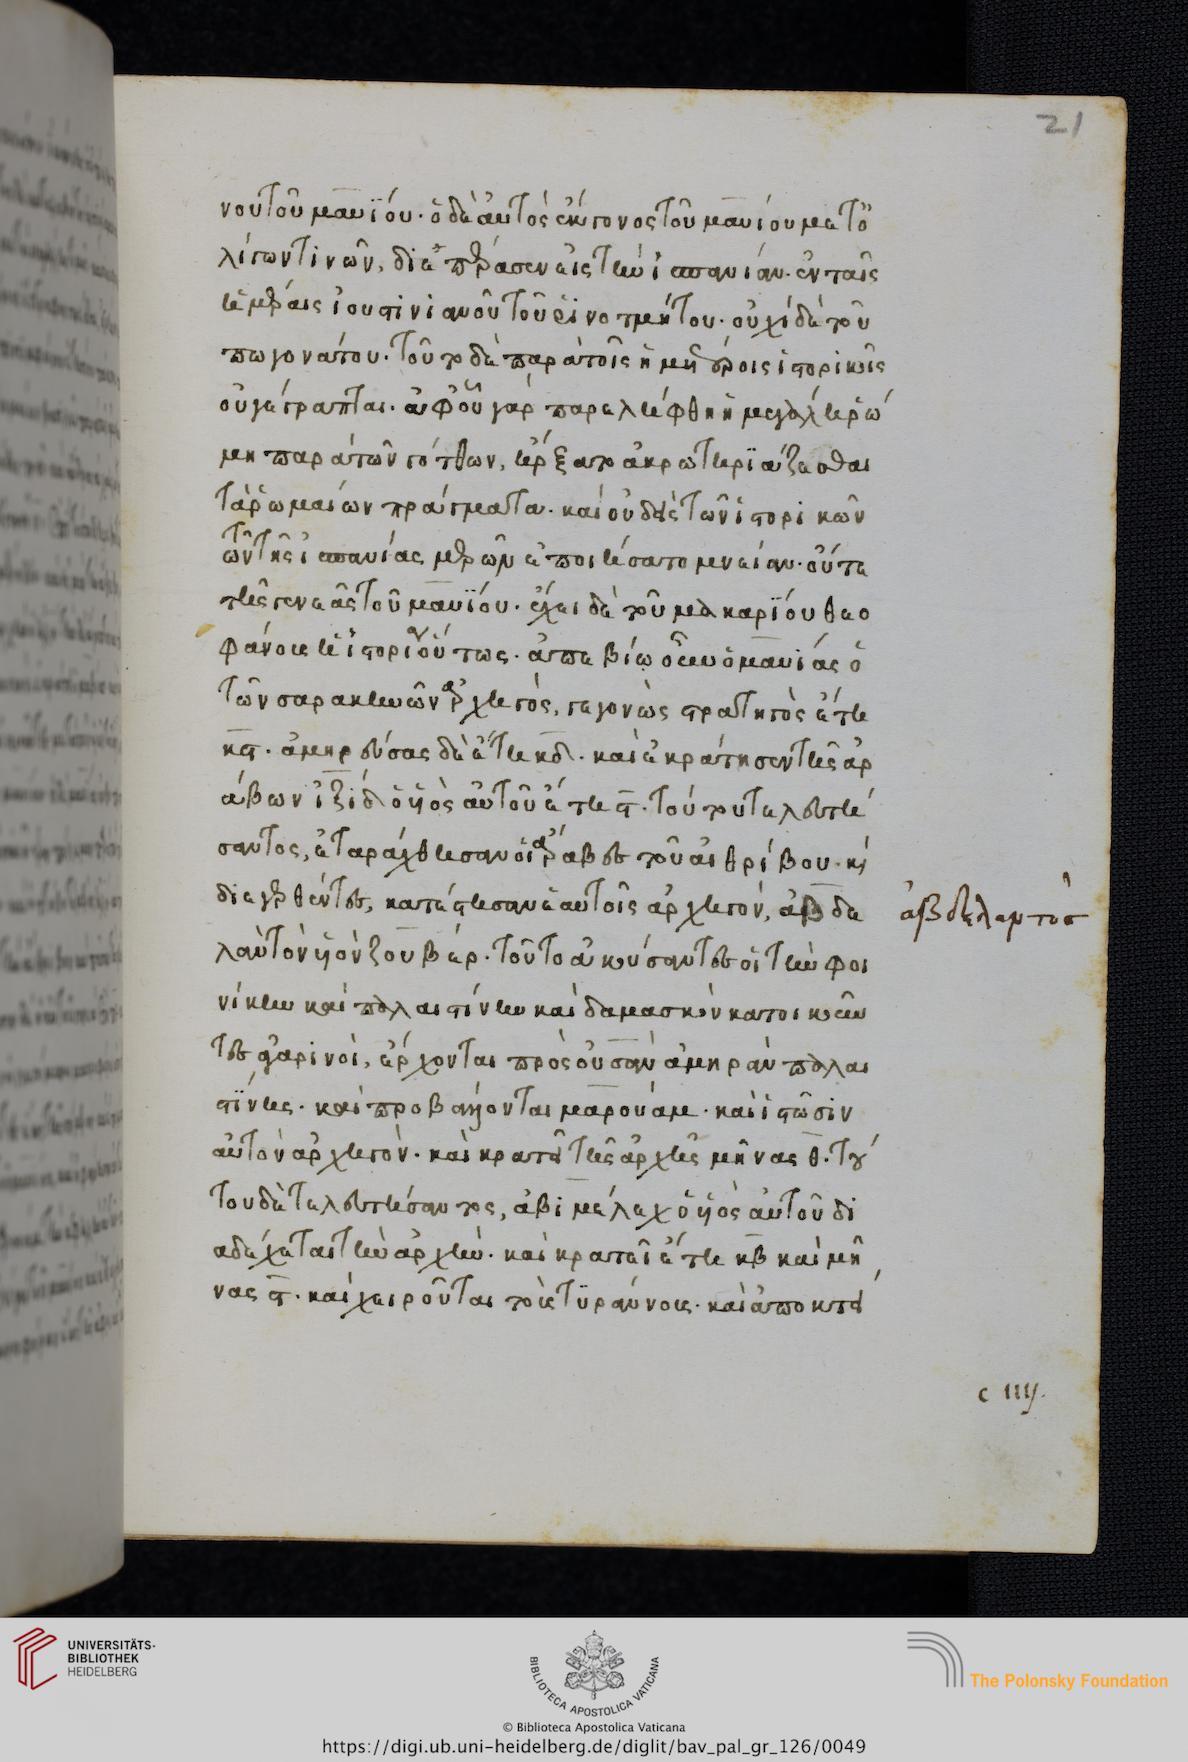 21
νου τοῦ μαυΐου· ὁ δὲ αὐτὸς ἔκγονος τοῦ μαυίου μετ ὀ
λίγων τινῶν, διεπέρασεν εἰς τὴν ἱσπανίαν· ἐν ταῖς
ἡμέραις ἰουστινιανοῦ τοῦ ῥινοτμήτου· οὐχὶ δὲ τοῦ
πωγονάτου· τοῦτο δὲ παρὰ τοῖς ἡμετέροις ἱστορικοῖς
οὐ γέγραπται· ἀφ οὗ γὰρ παρελήφθη ἡ μεγάλη ῥώ
μη παρὰ τῶν γότθων, ἤρξατο ἀκρωτηριάζεσθαι
τὰ ῥωμαίων πράγματα· καὶ οὐδεὶς τῶν ἱστορικῶν
τῶν τῆς ἱσπανίας μερῶν ἐποιήσατο μνείαν· οὔτε
τῆς γενεᾶς τοῦ μαυΐου· ἔχει δὲ τοῦ μακαρίου θεο
φάνους ἡ ἱστορία οὕτως· ἀπεβίω οὖν ὁ μαυίας ὁ
τῶν σαρακηνῶν ἀρχηγὸς, γεγονὼς στρατηγὸς ἔτη
κϛ· ἀμηρεύσας δὲ ἔτη κδ· καὶ ἐκράτησεν τῆς ἀρ
άβων ἰζὶδ ὁ υἱὸς αὐτοῦ ἔτη ϛ· τούτου τελευτή
σαντος, ἐταράχθησαν οἱ ἄραβες τοῦ αἰθρίβου· καὶ
διεγερθέντες, κατέστησαν ἑαυτοῖς ἀρχηγὸν, ἀβδε
λὰν τὸν υἱὸν ζουβέρ· τοῦτο ἀκούσαντες οἱ τὴν φοι
νίκην καὶ παλαιστίνην καὶ δαμασκὸν κατοικοῦν
τες ἀγαρινοὶ, ἔρχονται πρὸς οὐσὰν ἀμηρὰν παλαι
στίνης· καὶ προβάλλονται μαρουάμ· καὶ ἱστῶσιν
αὐτὸν ἀρχηγόν· καὶ κρατεῖ τῆς ἀρχῆς μῆνας θ· τού
του δὲ τελευτήσαντος, ἀβιμέλεχ ὁ υἱὸς αὐτοῦ δι
αδέχεται τὴν ἀρχήν· καὶ κρατεῖ ἔτη κβ καὶ μῆ
νας ϛ· καὶ χειροῦται τοὺς τυράννους· καὶ ἀποκτεί
c iiij.
UNIVERSITÄTS-
BIBLIOTHEK
HEIDELBERG
BIBLIOTECA APOSTOLICA VATICANA
The Polonsky Foundation
© Biblioteca Apostolica Vaticana
https://digi.ub.uni-heidelberg.de/diglit/bav_pal_gr_126/0049